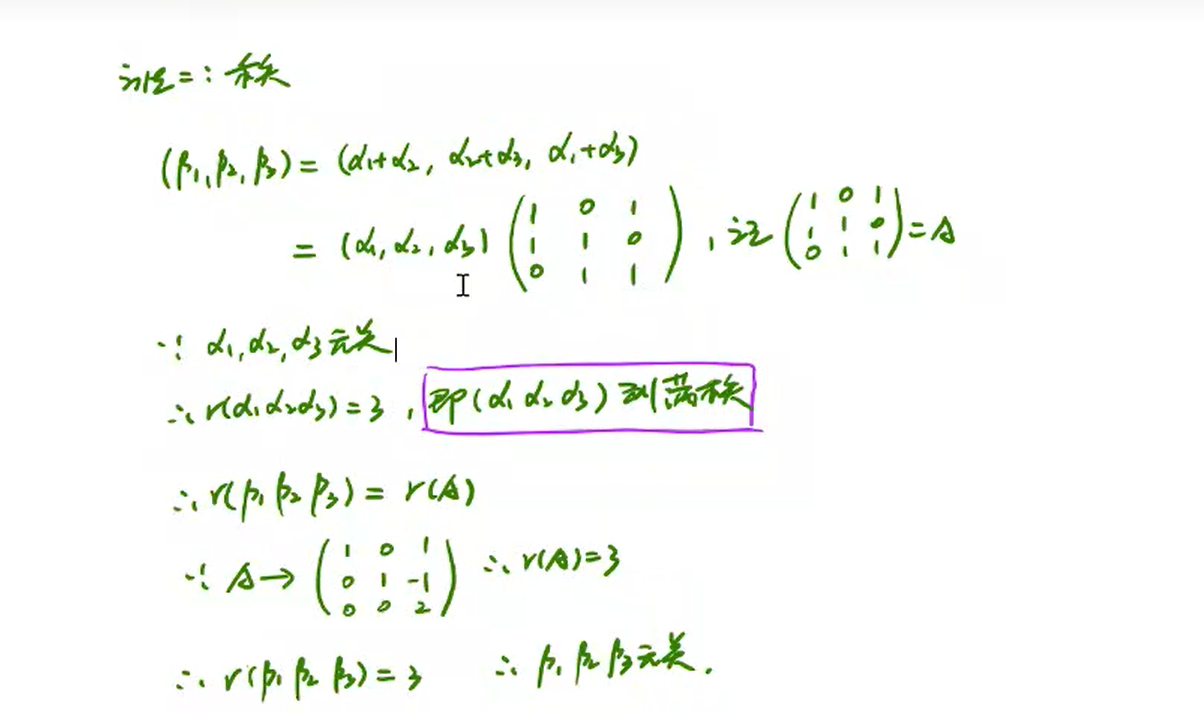 法二:秩
(β₁,β₂,β₃) = (α₁+α₂, α₂+α₃, α₁+α₃)
= (α₁,α₂,α₃) (1 0 1; 1 1 0; 0 1 1), 记 (1 0 1; 1 1 0; 0 1 1) = A
∵ α₁,α₂,α₃无关
∴ r(α₁α₂α₃) = 3, 即(α₁ α₂ α₃)列满秩
∴ r(β₁ β₂ β₃) = r(A)
∵ A → (1 0 1; 0 1 -1; 0 0 2) ∴ r(A)=3
∴ r(β₁ β₂ β₃) = 3 ∴ β₁ β₂ β₃无关.